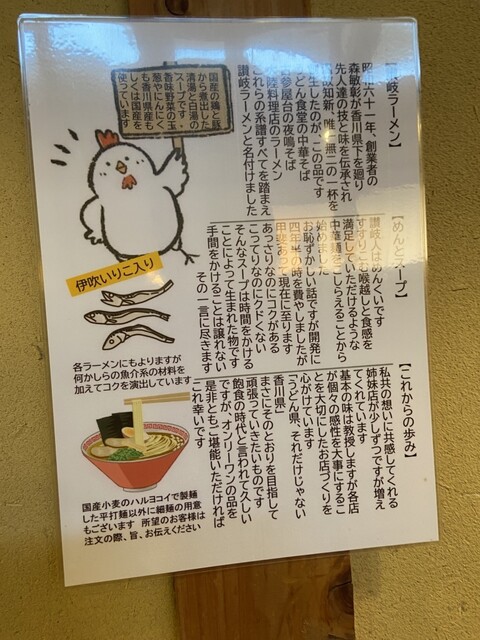 【讃岐ラーメン】
昭和六十一年、創業者の
森敏彰が香川県下を廻り
先人達の技と味を伝承され
温故知新、唯一無二の一杯を
生したのが、この品です
うどん食堂の中華そば
屋台の夜鳴そば
料理店のラーメン
これらの系譜すべてを踏まえ
讃岐ラーメンと名付けました
国産の鶏と豚
から煮出した
清湯と白湯の
スープです
香味野菜の玉
葱やにんにく
も香川県産も
しくは国産を
使っています
【めんとスープ】
讃岐人はめんくいです
すすりこむ喉越しと食感を
満足していただけるような
中華麺をこしらえることから
始めました
お恥ずかしい話ですが開発に
四年半の時を費やしましたが
甲斐あって現在に至ります
あっさりなのにコクがある
こってりなのにクドくない
そんなスープは時間をかける
ことによって生まれた物です
手間をかけることは譲れない
その一言に尽きます
伊吹いりこ入り
各ラーメンにもよりますが
何かしらの魚介系の材料を
加えてコクを演出しています
【これからの歩み】
私共の想いに共感してくれる
姉妹店が少しずつですが増え
てくれています
基本の味は教授しますが各店
が個々の感性を大事にするこ
とを大切にしたお店づくりを
心がけています
「うどん県、それだけじゃない
香川県」
まさにそのとおりを目指して
頑張っていきたいものです
飽食の時代と言われて久しい
ですが、オンリーワンの品を
是非ともご堪能いただければ
これ幸いです
国産小麦のハルヨコイで製麺
した平打麺以外に細麺の用意
もございます 所望のお客様は
注文の際、旨、お伝えください